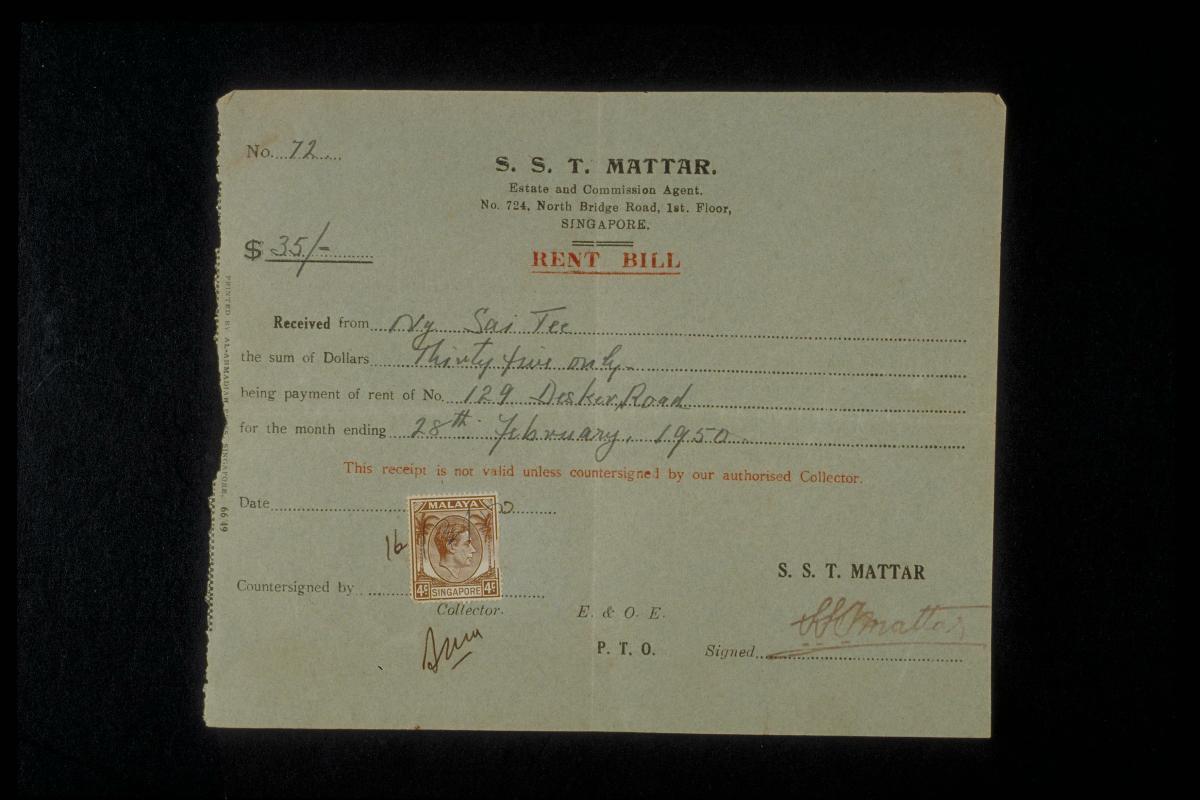 No. 72
S. S. T. MATTAR.
Estate and Commission Agent.
No. 724, North Bridge Road, 1st. Floor,
SINGAPORE.
$ 35/-
RENT BILL
Received from Ng Sai Tee
the sum of Dollars Thirty five only
being payment of rent of No. 129 Desker Road
for the month ending 28th February, 1950
This receipt is not valid unless countersigned by our authorised Collector.
Date
16
MALAYA
4c SINGAPORE 4c
Countersigned by
Collector.
S. S. T. MATTAR
E. & O. E.
P. T. O.
Signed SSTmattar
PRINTED BY AL-AHMADIAH PRESS, SINGAPORE. 66 49